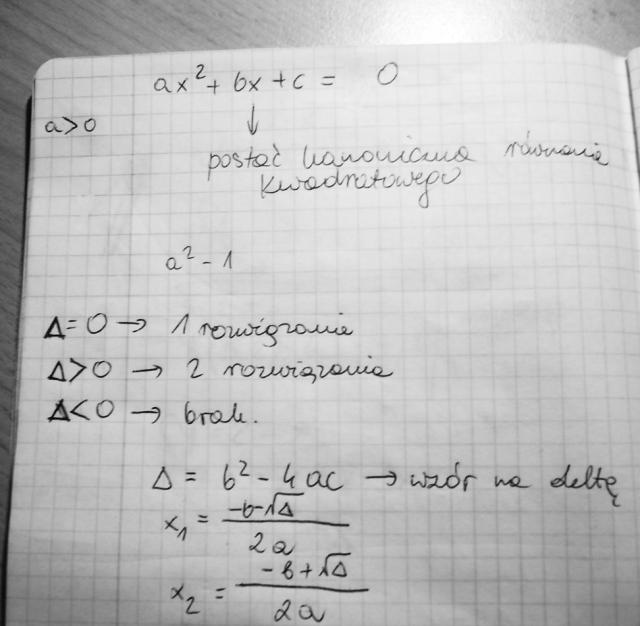 ax² + bx + c = 0
a>0
↓
postać kanoniczna równania
kwadratowego
a² - 1
Δ = 0 → 1 rozwiązanie
Δ > 0 → 2 rozwiązania
Δ < 0 → brak.
Δ = b² - 4ac → wzór na deltę
x₁ = (-b-√Δ)/2a
x₂ = (-b+√Δ)/2a